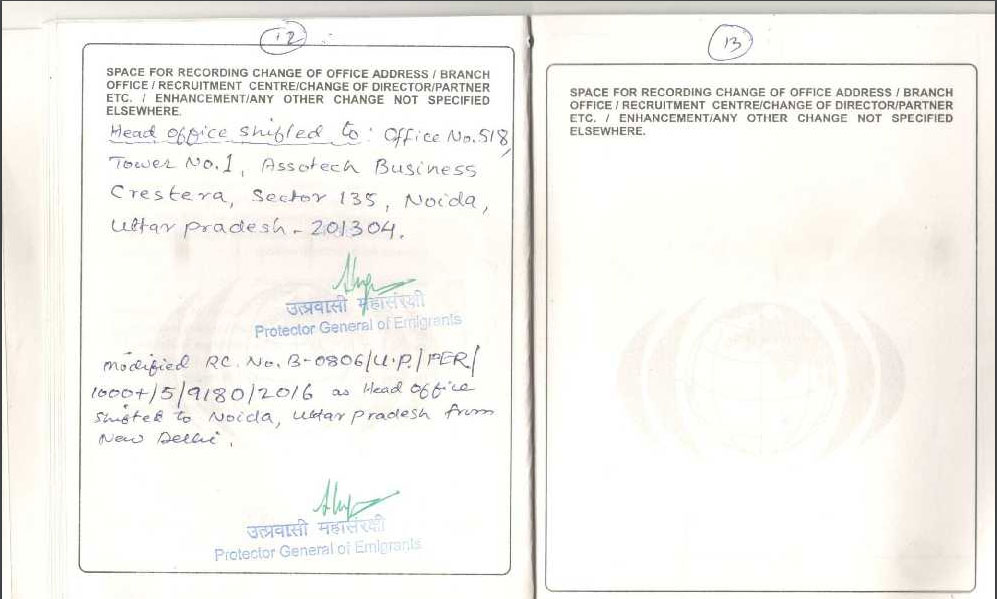 12
SPACE FOR RECORDING CHANGE OF OFFICE ADDRESS / BRANCH
OFFICE / RECRUITMENT CENTRE/CHANGE OF DIRECTOR/PARTNER
ETC. / ENHANCEMENT/ANY OTHER CHANGE NOT SPECIFIED
ELSEWHERE.
Head office shifted to: Office No.518,
Tower No.1, Assotech Business
Crestera, Sector 135, Noida,
Uttar pradesh - 201304.
उत्प्रवासी महासंरक्षी
Protector General of Emigrants
modified RC. No. B-0806/U.P./PER/
1000+/5/9180/2016 as Head office
Shifted to Noida, Uttar pradesh from
New Delhi.
उत्प्रवासी महासंरक्षी
Protector General of Emigrants
13
SPACE FOR RECORDING CHANGE OF OFFICE ADDRESS / BRANCH
OFFICE / RECRUITMENT CENTRE/CHANGE OF DIRECTOR/PARTNER
ETC. / ENHANCEMENT/ANY OTHER CHANGE NOT SPECIFIED
ELSEWHERE.